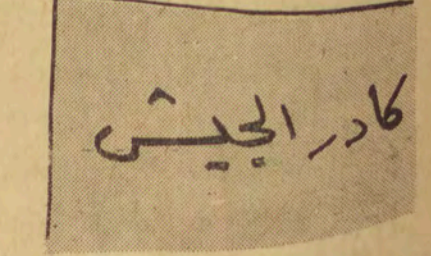 كادر الجيش